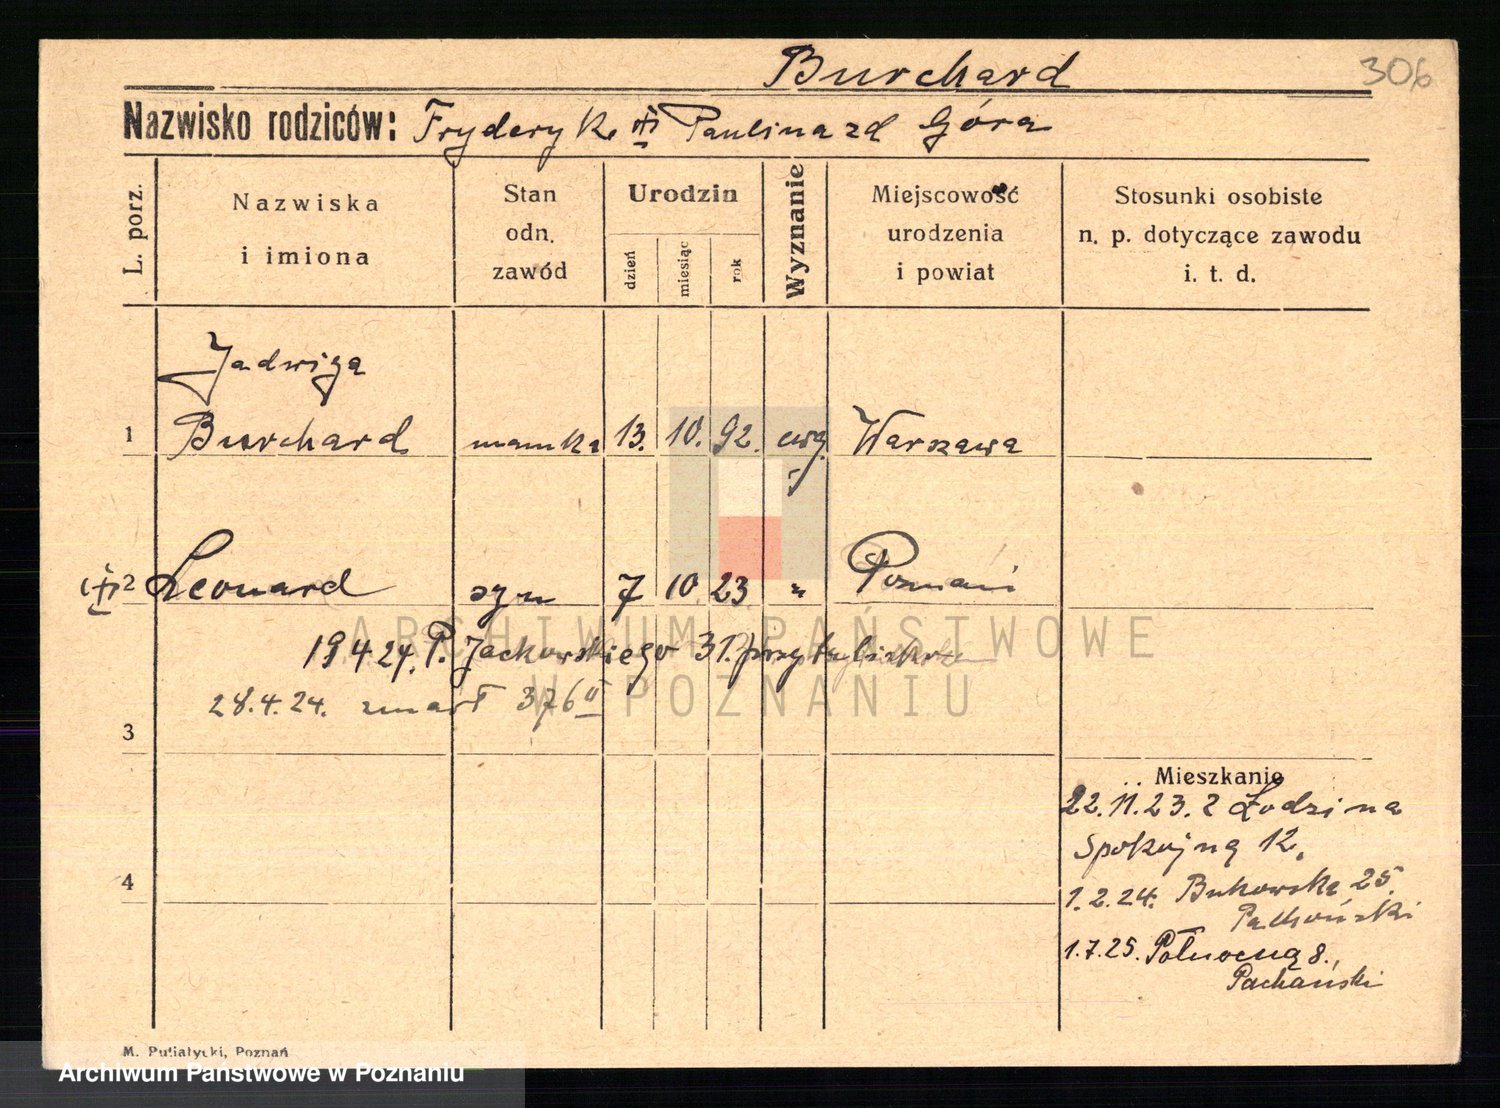 Burchard
306
Nazwisko rodziców: Fryderyk Paulina zd Góra
L. porz.
Nazwiska
i imiona
Stan
odn.
zawód
Urodzin
dzień
miesiąc
rok
Wyznanie
Miejscowość
urodzenia
i powiat
Stosunki osobiste
n. p. dotyczące zawodu
i. t. d.
Jadwiga
1 Burchard 13. 10. 92. ewg. Warszawa
2 Leonard syn 7 10 23 " Poznań
19 4 24. P. Jackowskiego 31. przytulisko
28.4.24. zmarł 376 II
3
Mieszkanie
22.11.23. z Łodzi na
Spokojną 12.
4
1.2.24. Bukowska 25.
1.7.25. Północną 8.,
Pachański
ARCHIWUM PAŃSTWOWE
W POZNANIU
M. Putiatycki, Poznań
Archiwum Państwowe w Poznaniu